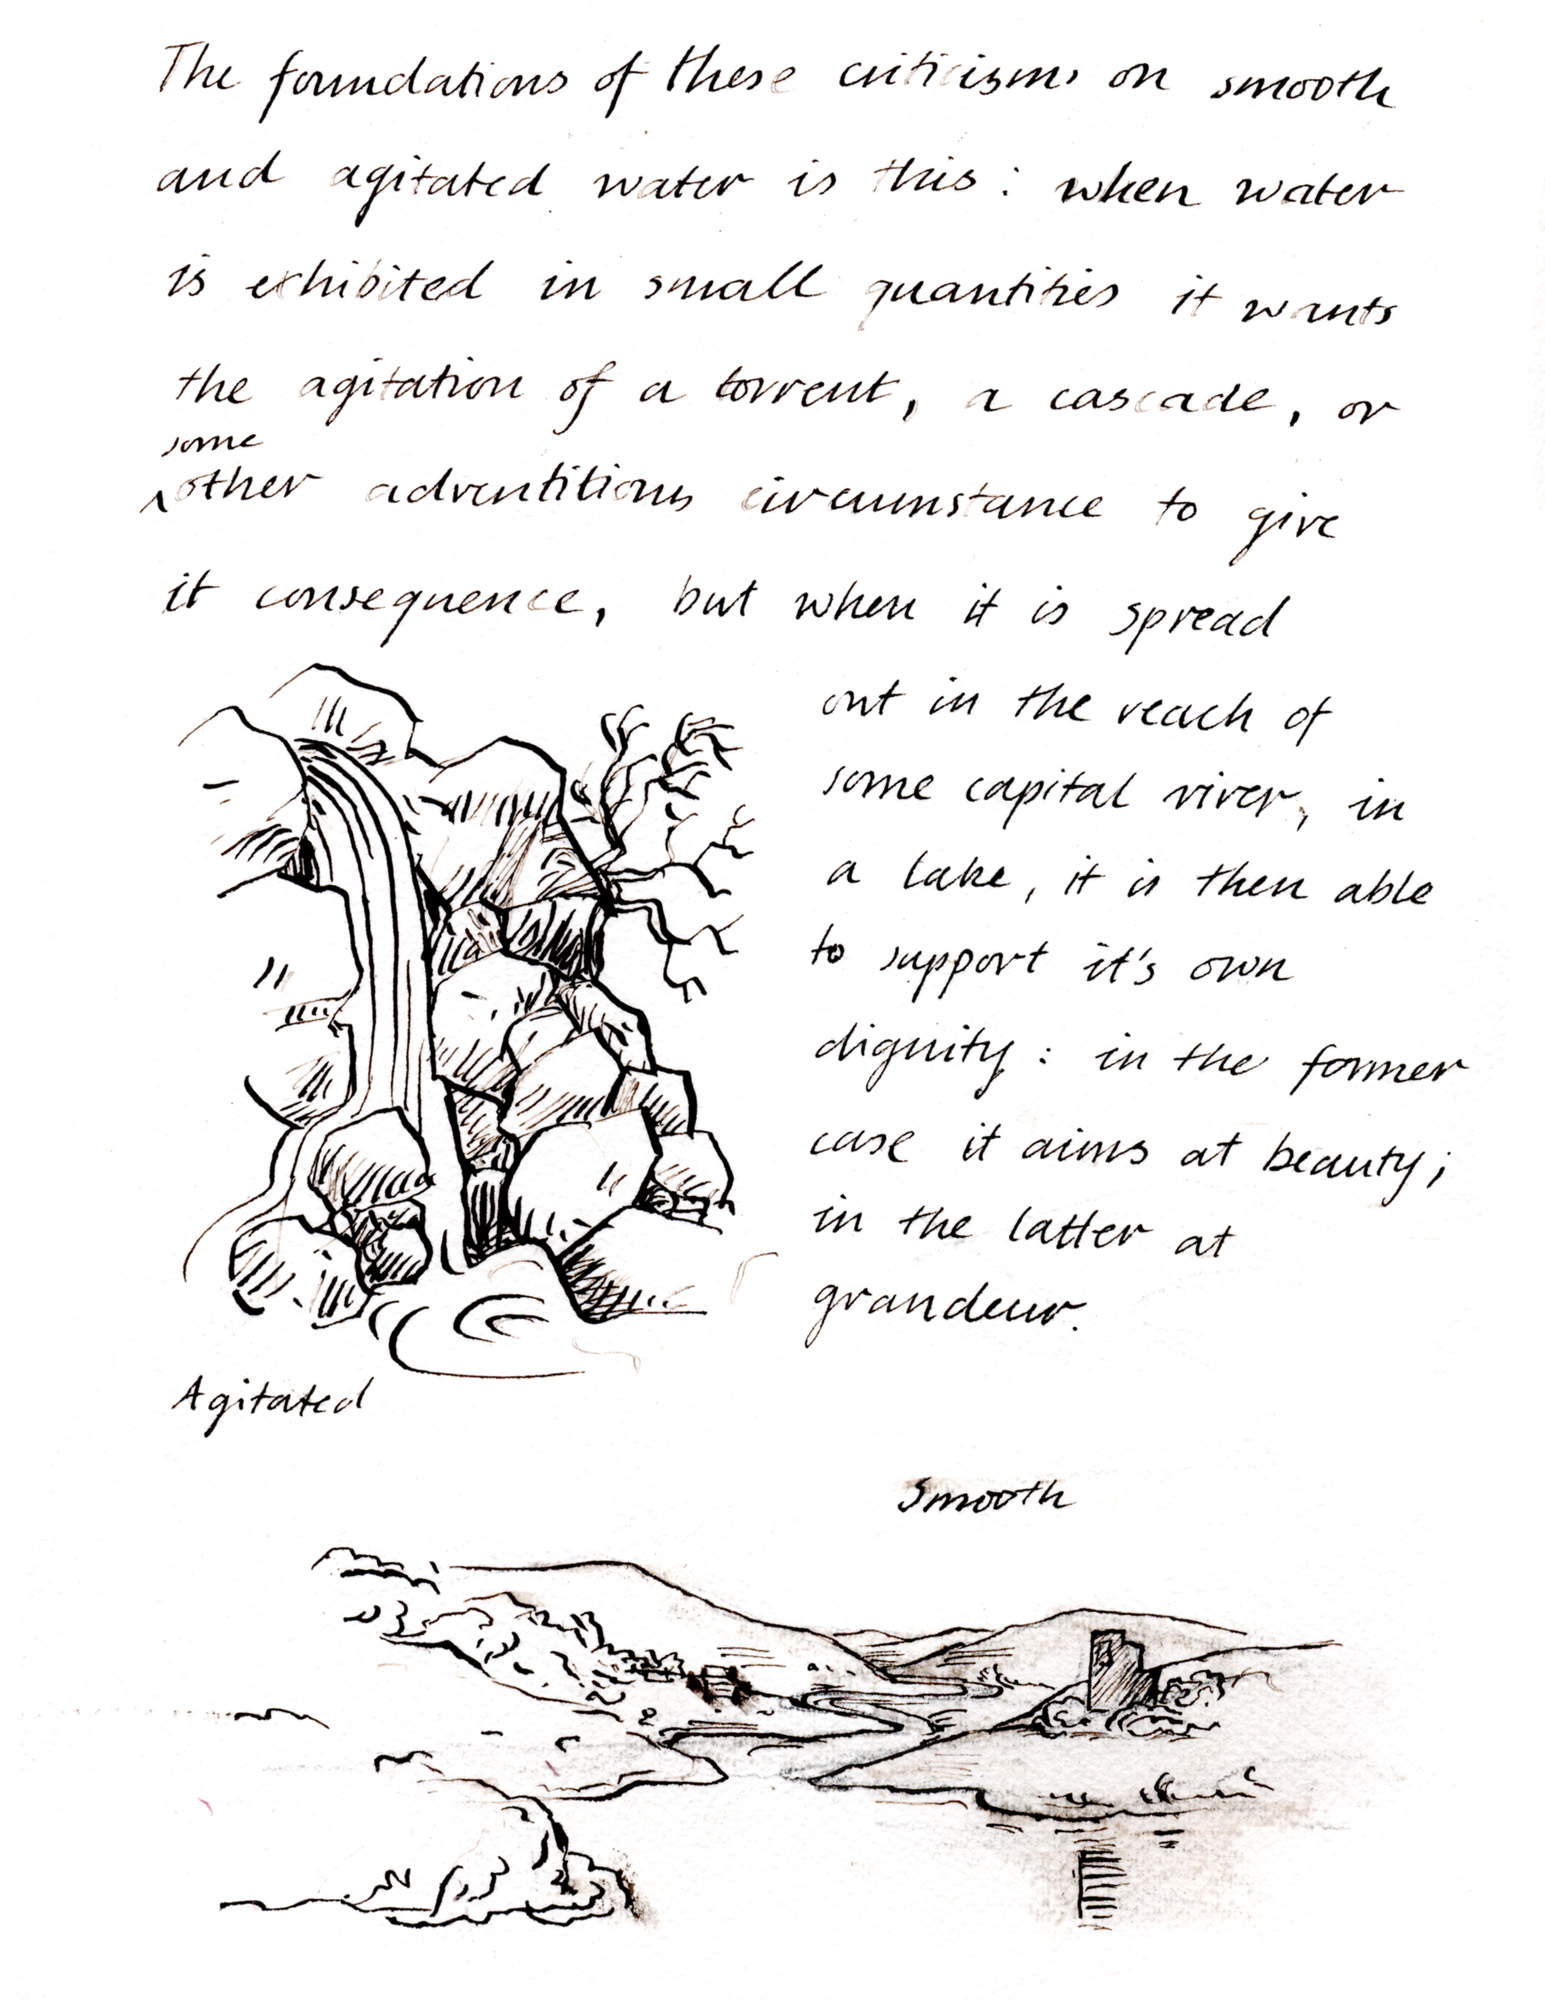 The foundations of these criticisms on smooth
and agitated water is this: when water
is exhibited in small quantities it wants
the agitation of a torrent, a cascade, or
some
^other adventitious circumstance to give
it consequence, but when it is spread
out in the reach of
some capital river, in
a lake, it is then able
to support it's own
dignity: in the former
case it aims at beauty;
in the latter at
grandeur.
Agitated
Smooth